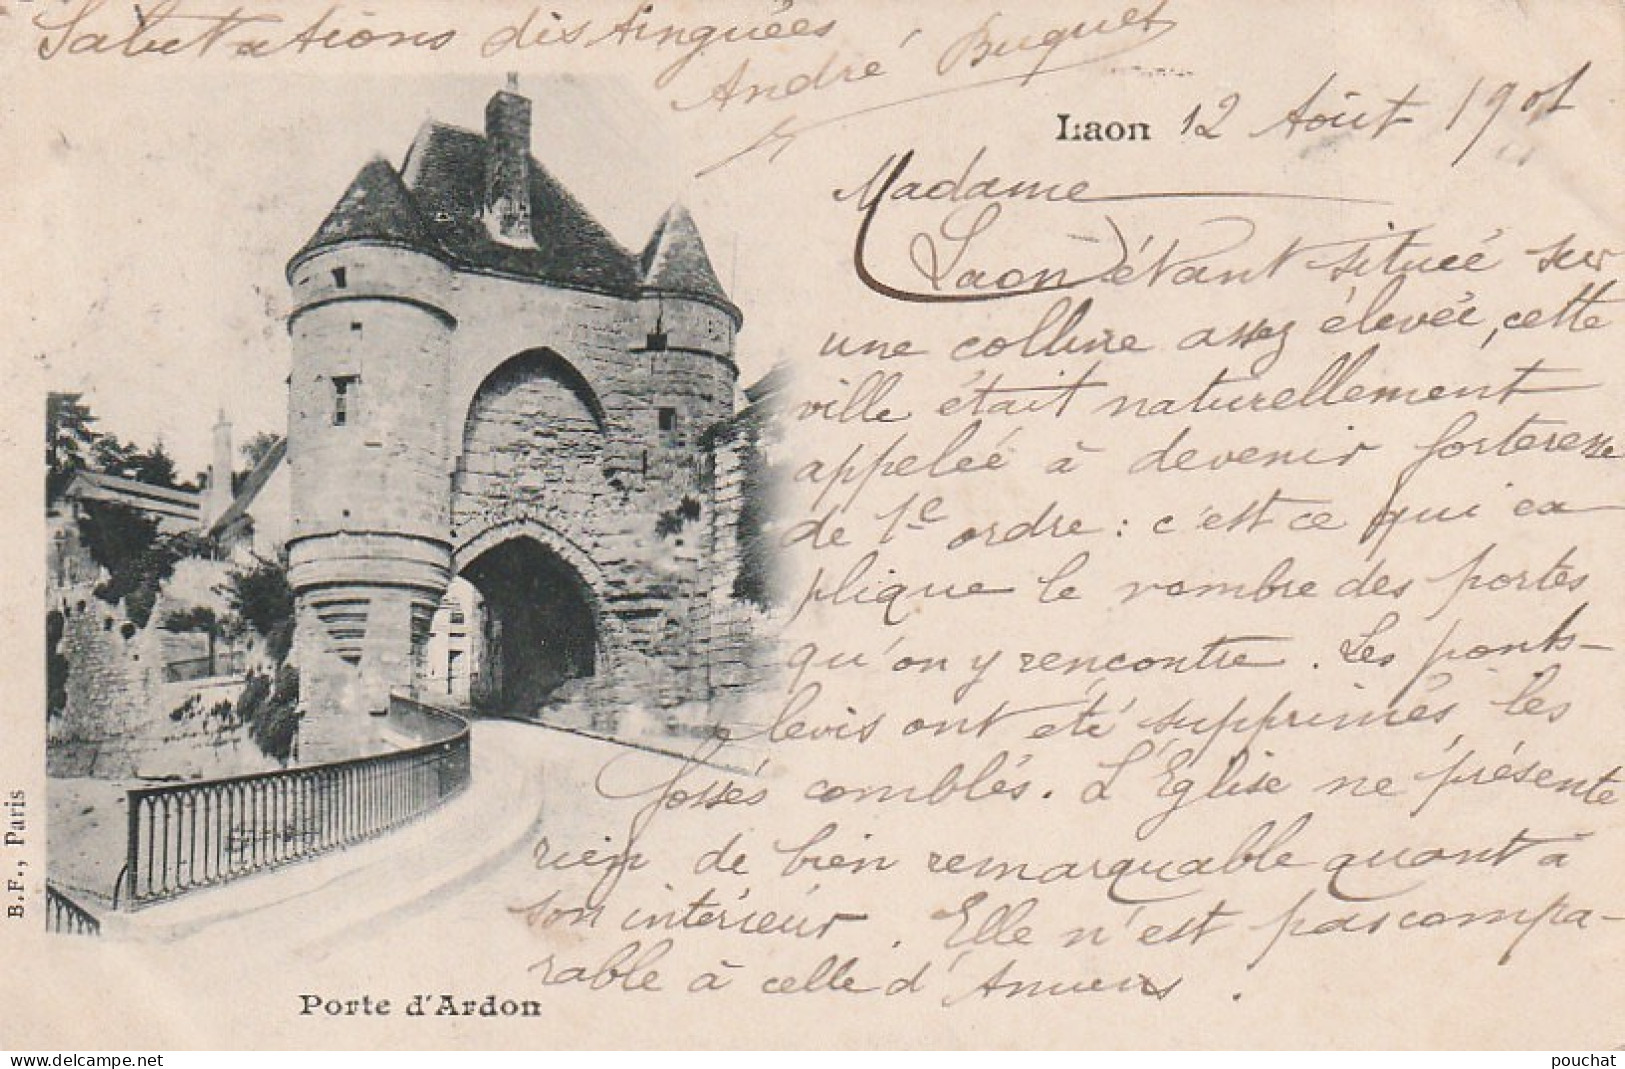 Salutations distinguées
André Buquet
Laon 12 Août 1901
Madame
Laon étant située sur
une colline assez élevée, cette
ville était naturellement
appelée à devenir forteresse
de 1e ordre : c'est ce qui ex
plique le nombre des portes
qu'on y rencontre. Les ponts-
levis ont été supprimés, les
fossés comblés. L'Eglise ne présente
rien de bien remarquable quant à
son intérieur. Elle n'est pas compa-
rable à celle d'Amiens.
B.F., Paris
Porte d'Ardon
www.delcampe.net
pouchat